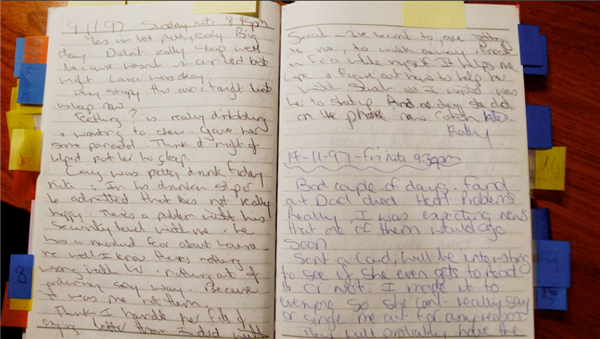 9-11-97 Sunday nite 8.45pm
Yes in bed pretty early. Big
day. Didn't really sleep well
because wasn't a control last
night. Laura was okay.
Very sleepy this avo & tonight but
asleep now
Teething? is really dribbling
& wanting to chew. Gave her
some panadol. Think it might of
helped put her to sleep.
Craig was pretty drunk Friday
nite. In his drunken
he admitted that he's not really
happy. There's a problem with his
Security level with me. he
has a mental fear about Laura
me well I know there's nothing
wrong with us, nothing out of
ordinary any way. Because
it was me not them.
Think I handle her fits of
crying better than I did with
Sarah - I've learnt to, one
to me, to walk away
in for a while myself. It helps me
cope & figure out how to help her
With Sarah all I would
her to shut up. And one day she did
on the phone, now Catch later.
Kathy.
14-11-97 - Fri nite 930pm
Bad couple of days. Found
out Dad died. Heart Problems
Really, I was expecting news
that one of them would go
soon
Sent a Card, will be interesting
to see if she even gets to read
it or not. I made it to
everyone so she can't really say
or single me out for any reason
They will probably have the